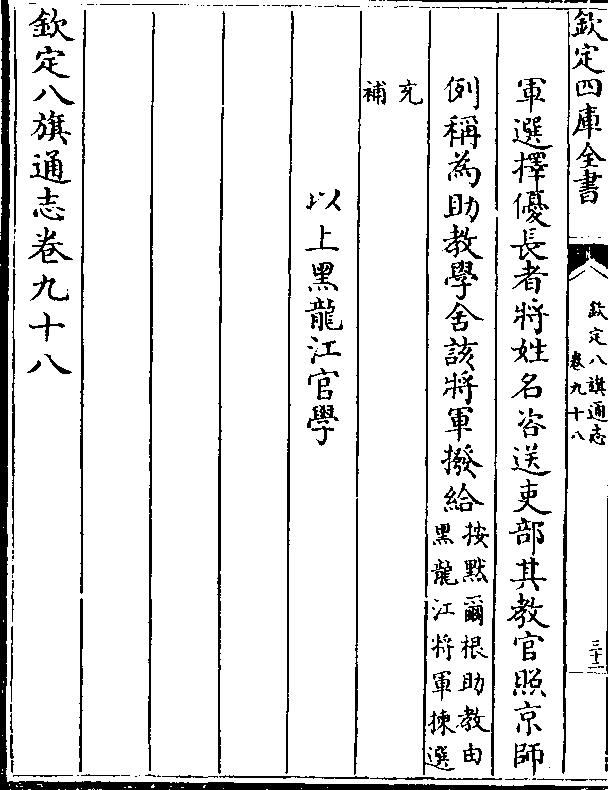 欽定四庫全書
欽定八旗通志
卷九十八
三十二
軍選擇優長者將姓名咨送吏部其教官照京師
例稱為助教學舍該將軍撥給
按默爾根助教由
黑龍江將軍揀選
充
補
以上黑龍江官學
欽定八旗通志卷九十八